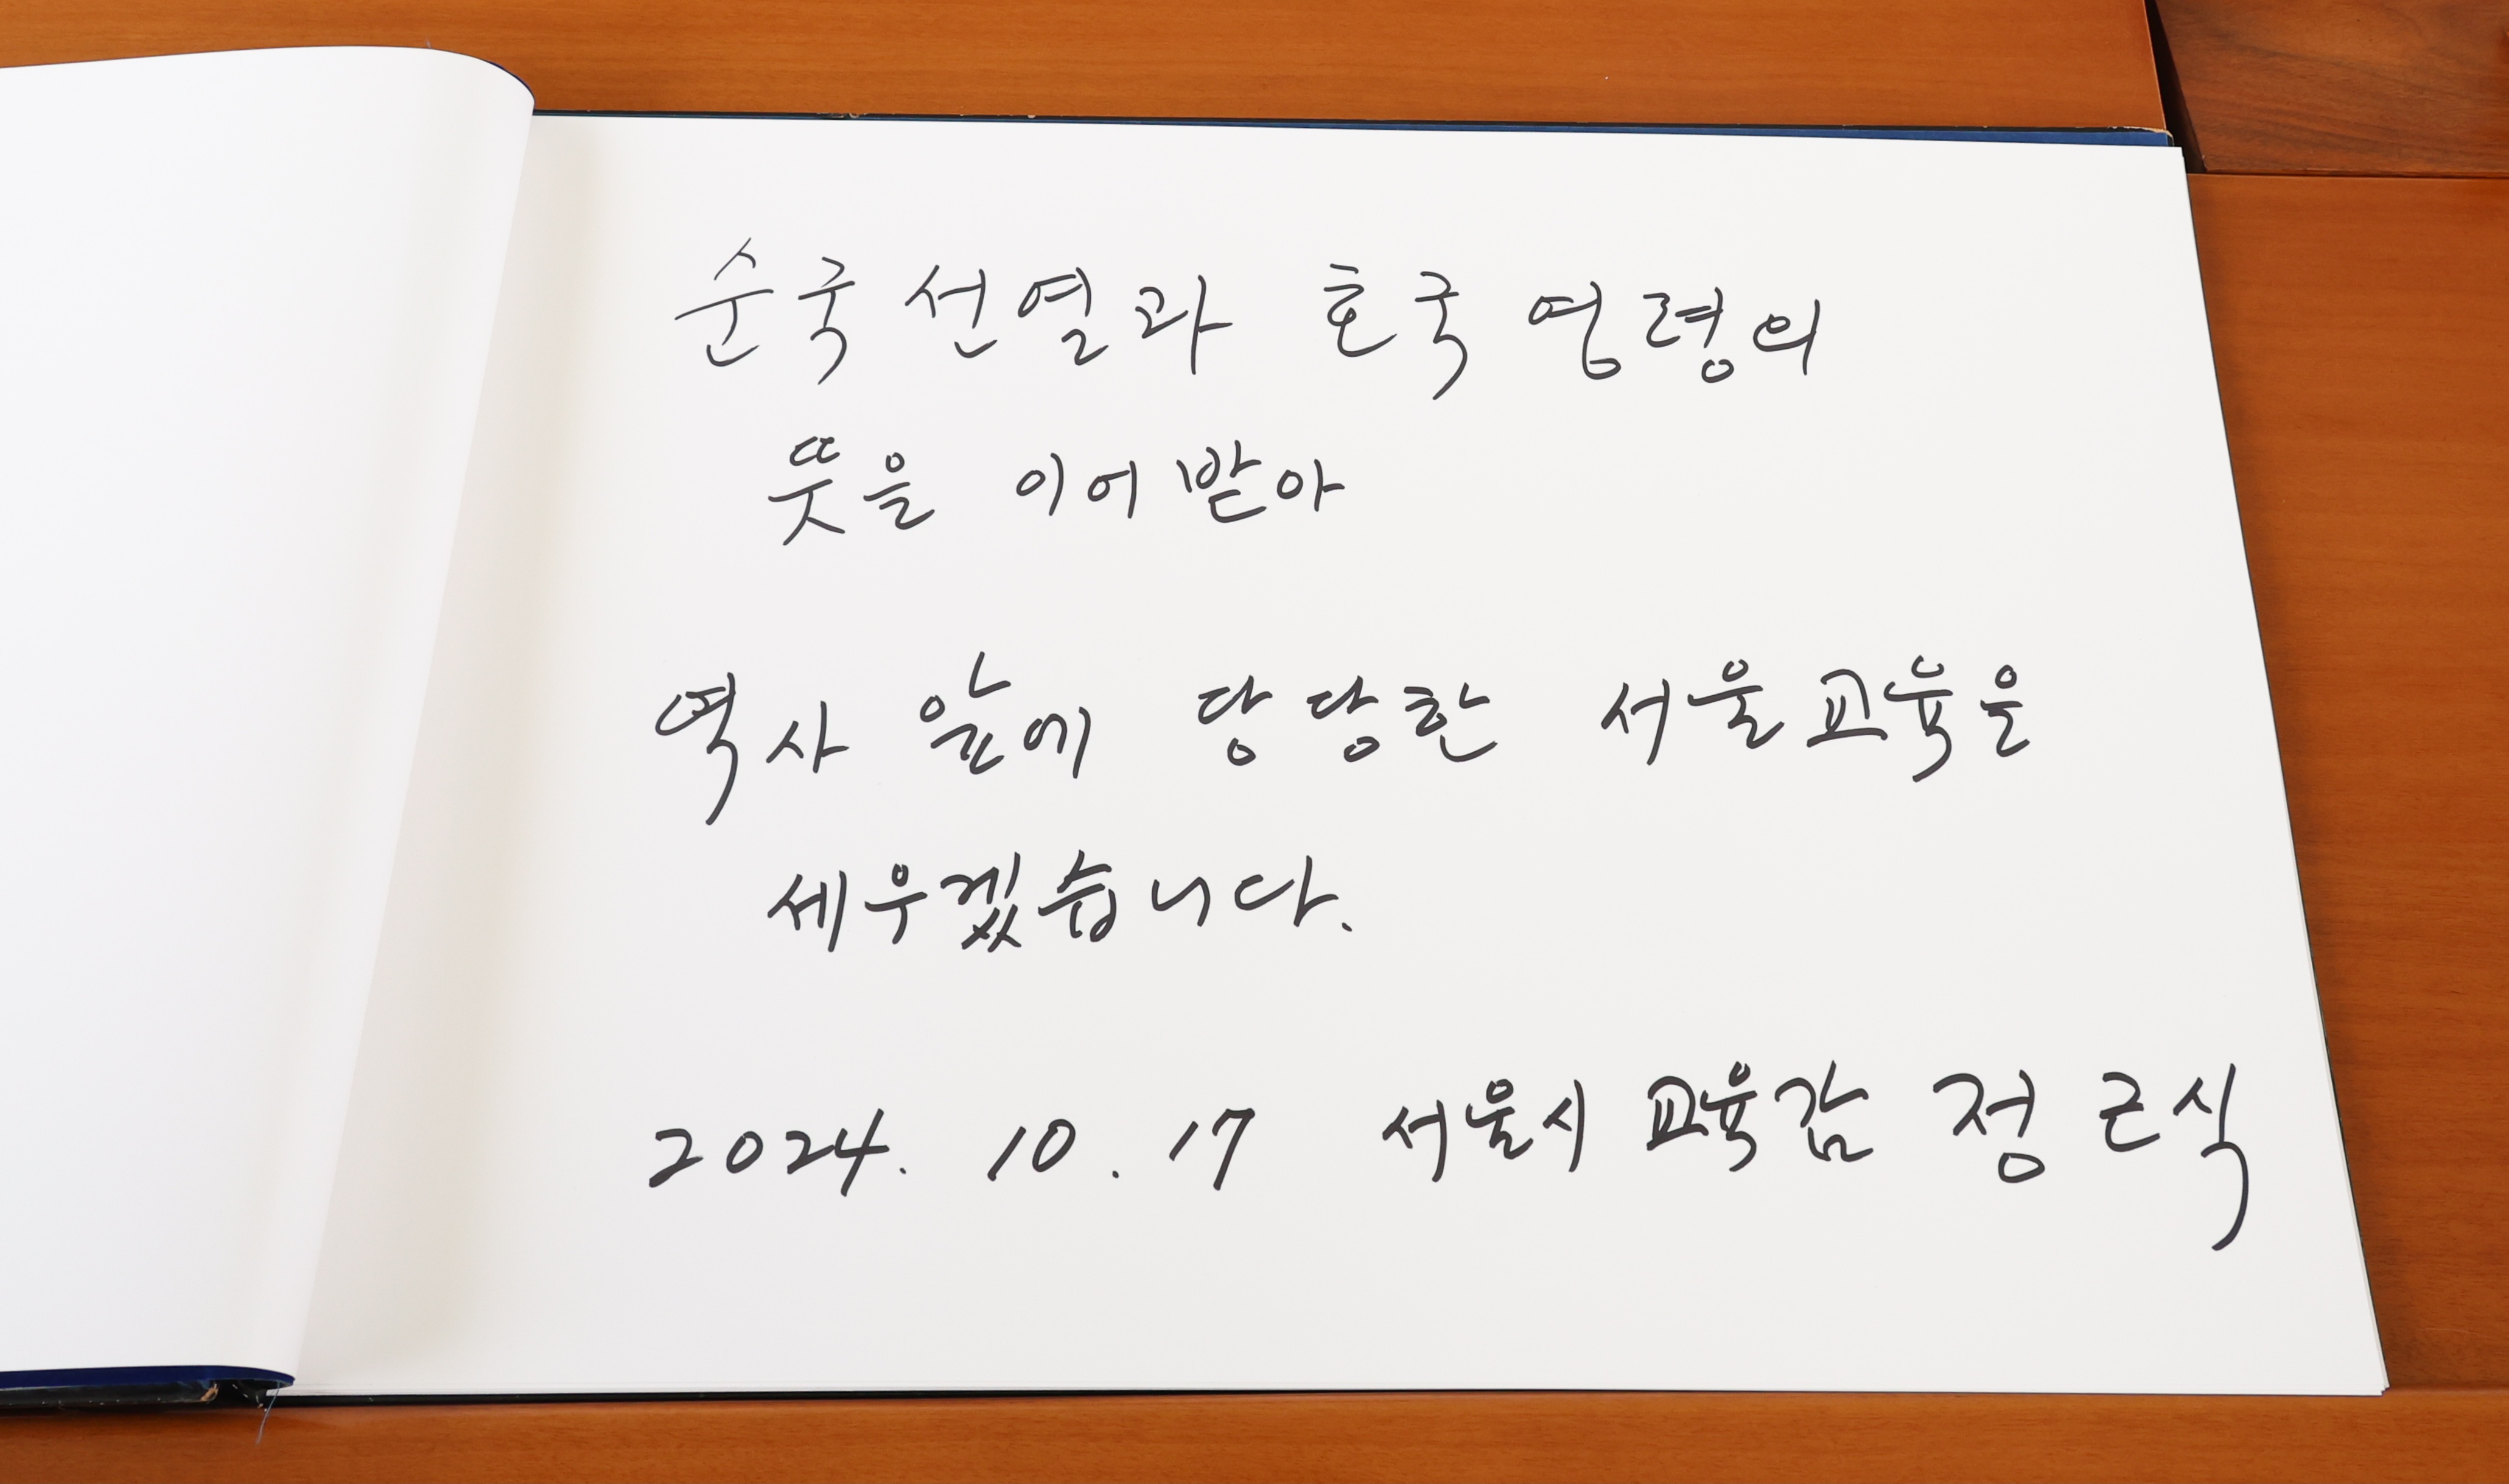 순국선열과 호국영령의
뜻을 이어받아
역사 앞에 당당한 서울교육을
세우겠습니다.
2024. 10. 17 서울시 교육감 정근식